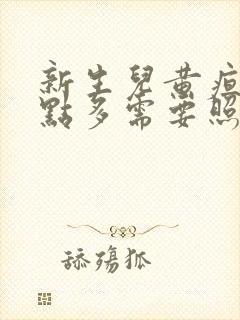 新生兒黃疸
點多需要照
舔殤狐